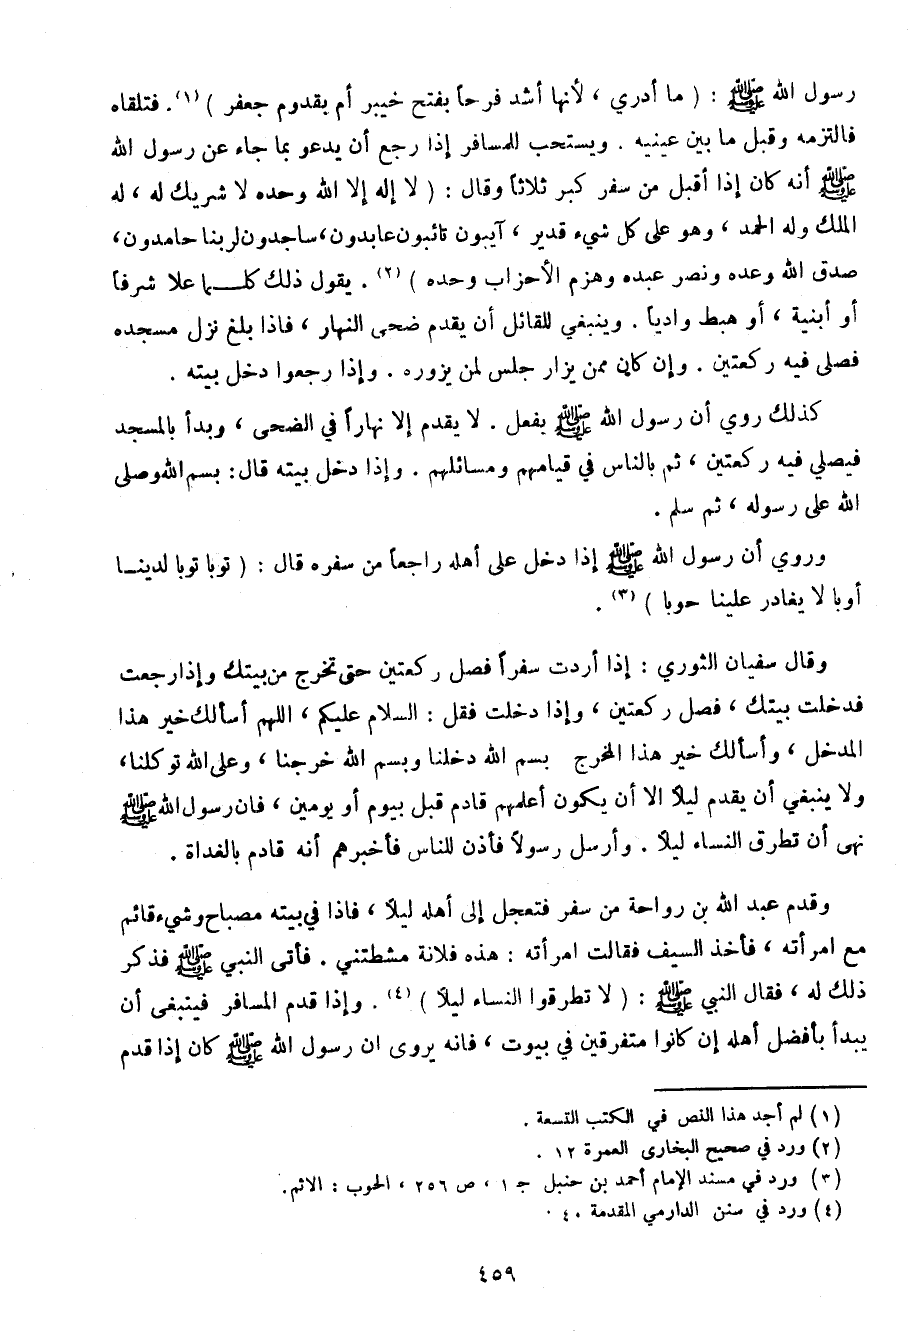 رسول الله ﷺ : ( ما أدري ، لأنها أشد فرحاً بفتح خيبر أم بقدوم جعفر ) (١). فتلقاه
فالتزمه وقبل ما بين عينيه . ويستحب للمسافر إذا رجع أن يدعو بما جاء عن رسول الله
ﷺ أنه كان إذا أقبل من سفر كبر ثلاثاً وقال : ( لا إله إلا الله وحده لا شريك له ، له
الملك وله الحمد ، وهو على كل شيء قدير ، آيبون تائبون عابدون، ساجدون لربنا حامدون،
صدق الله وعده ونصر عبده وهزم الأحزاب وحده ) (٢) . يقول ذلك كلــما علا شرفاً
أو أبنية ، أو هبط وادياً . وينبغي للقائل أن يقدم ضحى النهار ، فاذا بلغ نزل مسجده
فصلى فيه ركعتين . وإن كان ممن يزار جلس لمن يزوره . وإذا رجعوا دخل بيته .
كذلك روي أن رسول الله ﷺ بفعل . لا يقدم إلا نهاراً في الضحى ، وبدأ بالمسجد
فيصلي فيه ركعتين ، ثم بالناس في قيامهم ومسائلهم . وإذا دخل بيته قال: بسم الله وصلى
الله على رسوله ، ثم سلم .
وروي أن رسول الله ﷺ إذا دخل على أهله راجعاً من سفره قال : ( توبا توبا لدينــا
أوبا لا يغادر علينا حوبا ) (٣) .
وقال سفيان الثوري : إذا أردت سفراً فصل ركعتين حتى تخرج من بيتك وإذا رجعت
فدخلت بيتك ، فصل ركعتين ، وإذا دخلت فقل : السلام عليكم ، اللهم أسألك خير هذا
المدخل ، وأسألك خير هذا المخرج بسم الله دخلنا وبسم الله خرجنا ، وعلى الله توكلنا،
ولا ينبغي أن يقدم ليلاً الا أن يكون أعلمهم قادم قبل بيوم أو يومين ، فان رسول الله ﷺ
نهى أن تطرق النساء ليلاً . وأرسل رسولاً فأذن للناس فأخبرهم أنه قادم بالغداة .
وقدم عبد الله بن رواحة من سفر فتعجل إلى أهله ليلاً ، فاذا في بيته مصباح وشيء قائم
مع امرأته ، فأخذ السيف فقالت امرأته : هذه فلانة مشطتني . فأتى النبي ﷺ فذكر
ذلك له ، فقال النبي ﷺ : ( لا تطرقوا النساء ليلاً ) (٤) . وإذا قدم المسافر فينبغى أن
يبدأ بأفضل أهله إن كانوا متفرقين في بيوت ، فانه يروى ان رسول الله ﷺ كان إذا قدم
(١) لم أجد هذا النص في الكتب التسعة .
(٢) ورد في صحيح البخارى العمرة ١٢ .
(٣) ورد في مسند الإمام أحمد بن حنبل جـ ١ ، ص ٢٥٦ ، الحوب : الاثم.
(٤) ورد في سنن الدارمي المقدمة ٤٠ .
٤٥٩